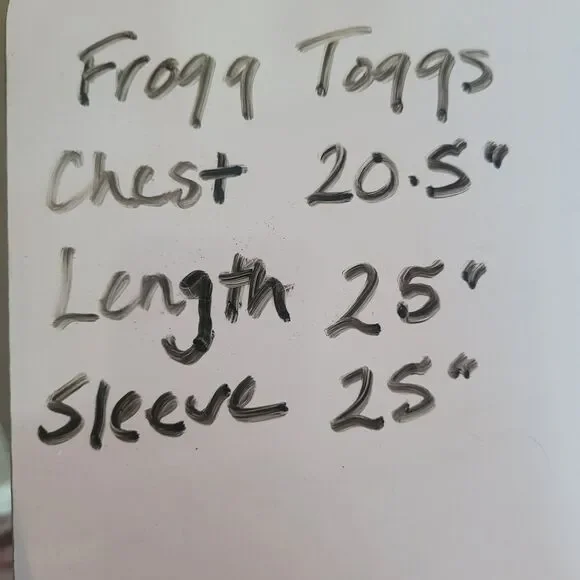 Frogg Toggs
Chest 20.5"
Length 25"
Sleeve 25"